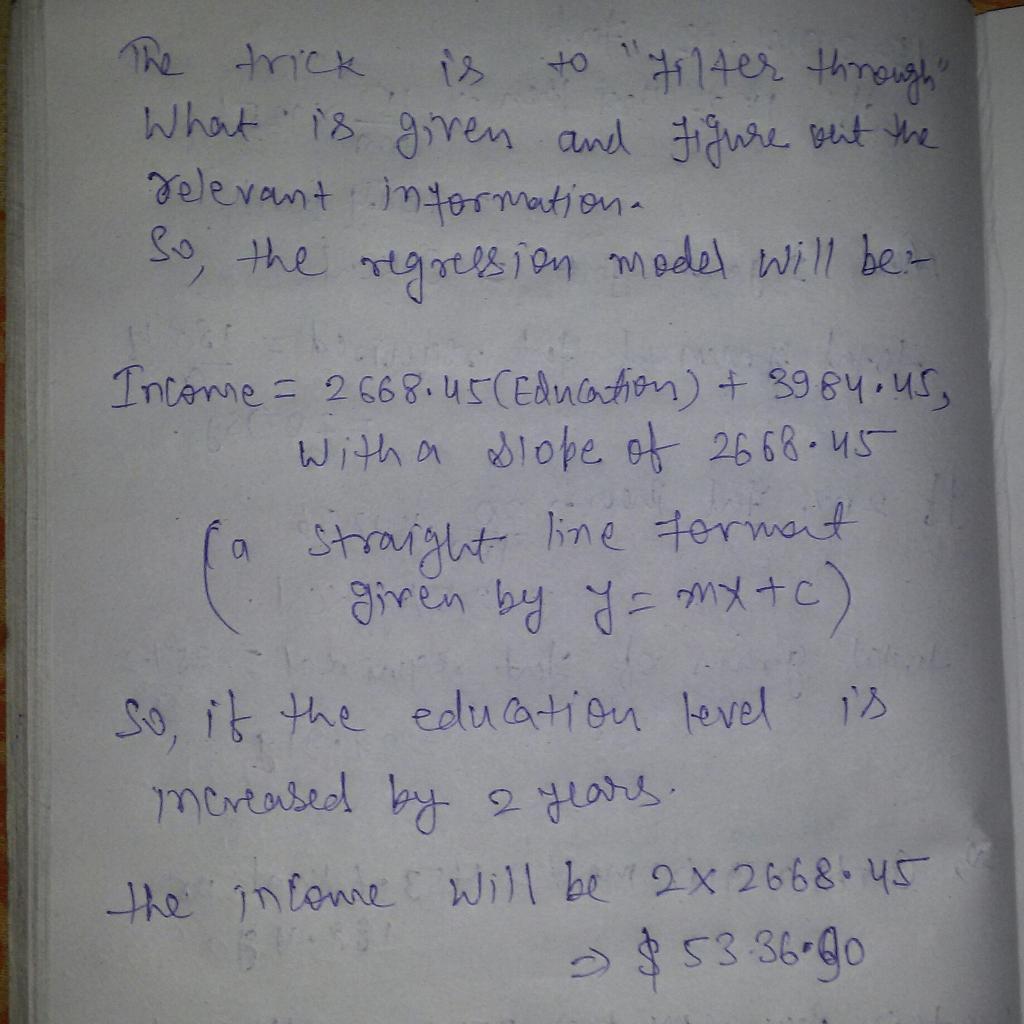 The trick is to "filter through"
What is given and figure out the
relevant information.
So, the regression model will be:-
Income = 2668.45(Education) + 3984.45,
with a slope of 2668.45
(a straight line format
given by y = mx + c)
So, if the education level is
increased by 2 years.
the income will be 2x2668.45
⇒ $ 5336.90